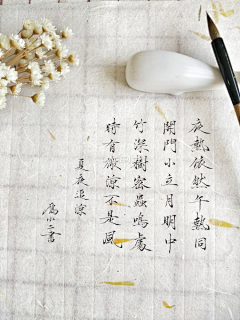 夜熱依然午熱同
開門小立月明中
竹深樹密蟲鳴處
時有微涼不是風
夏夜追涼